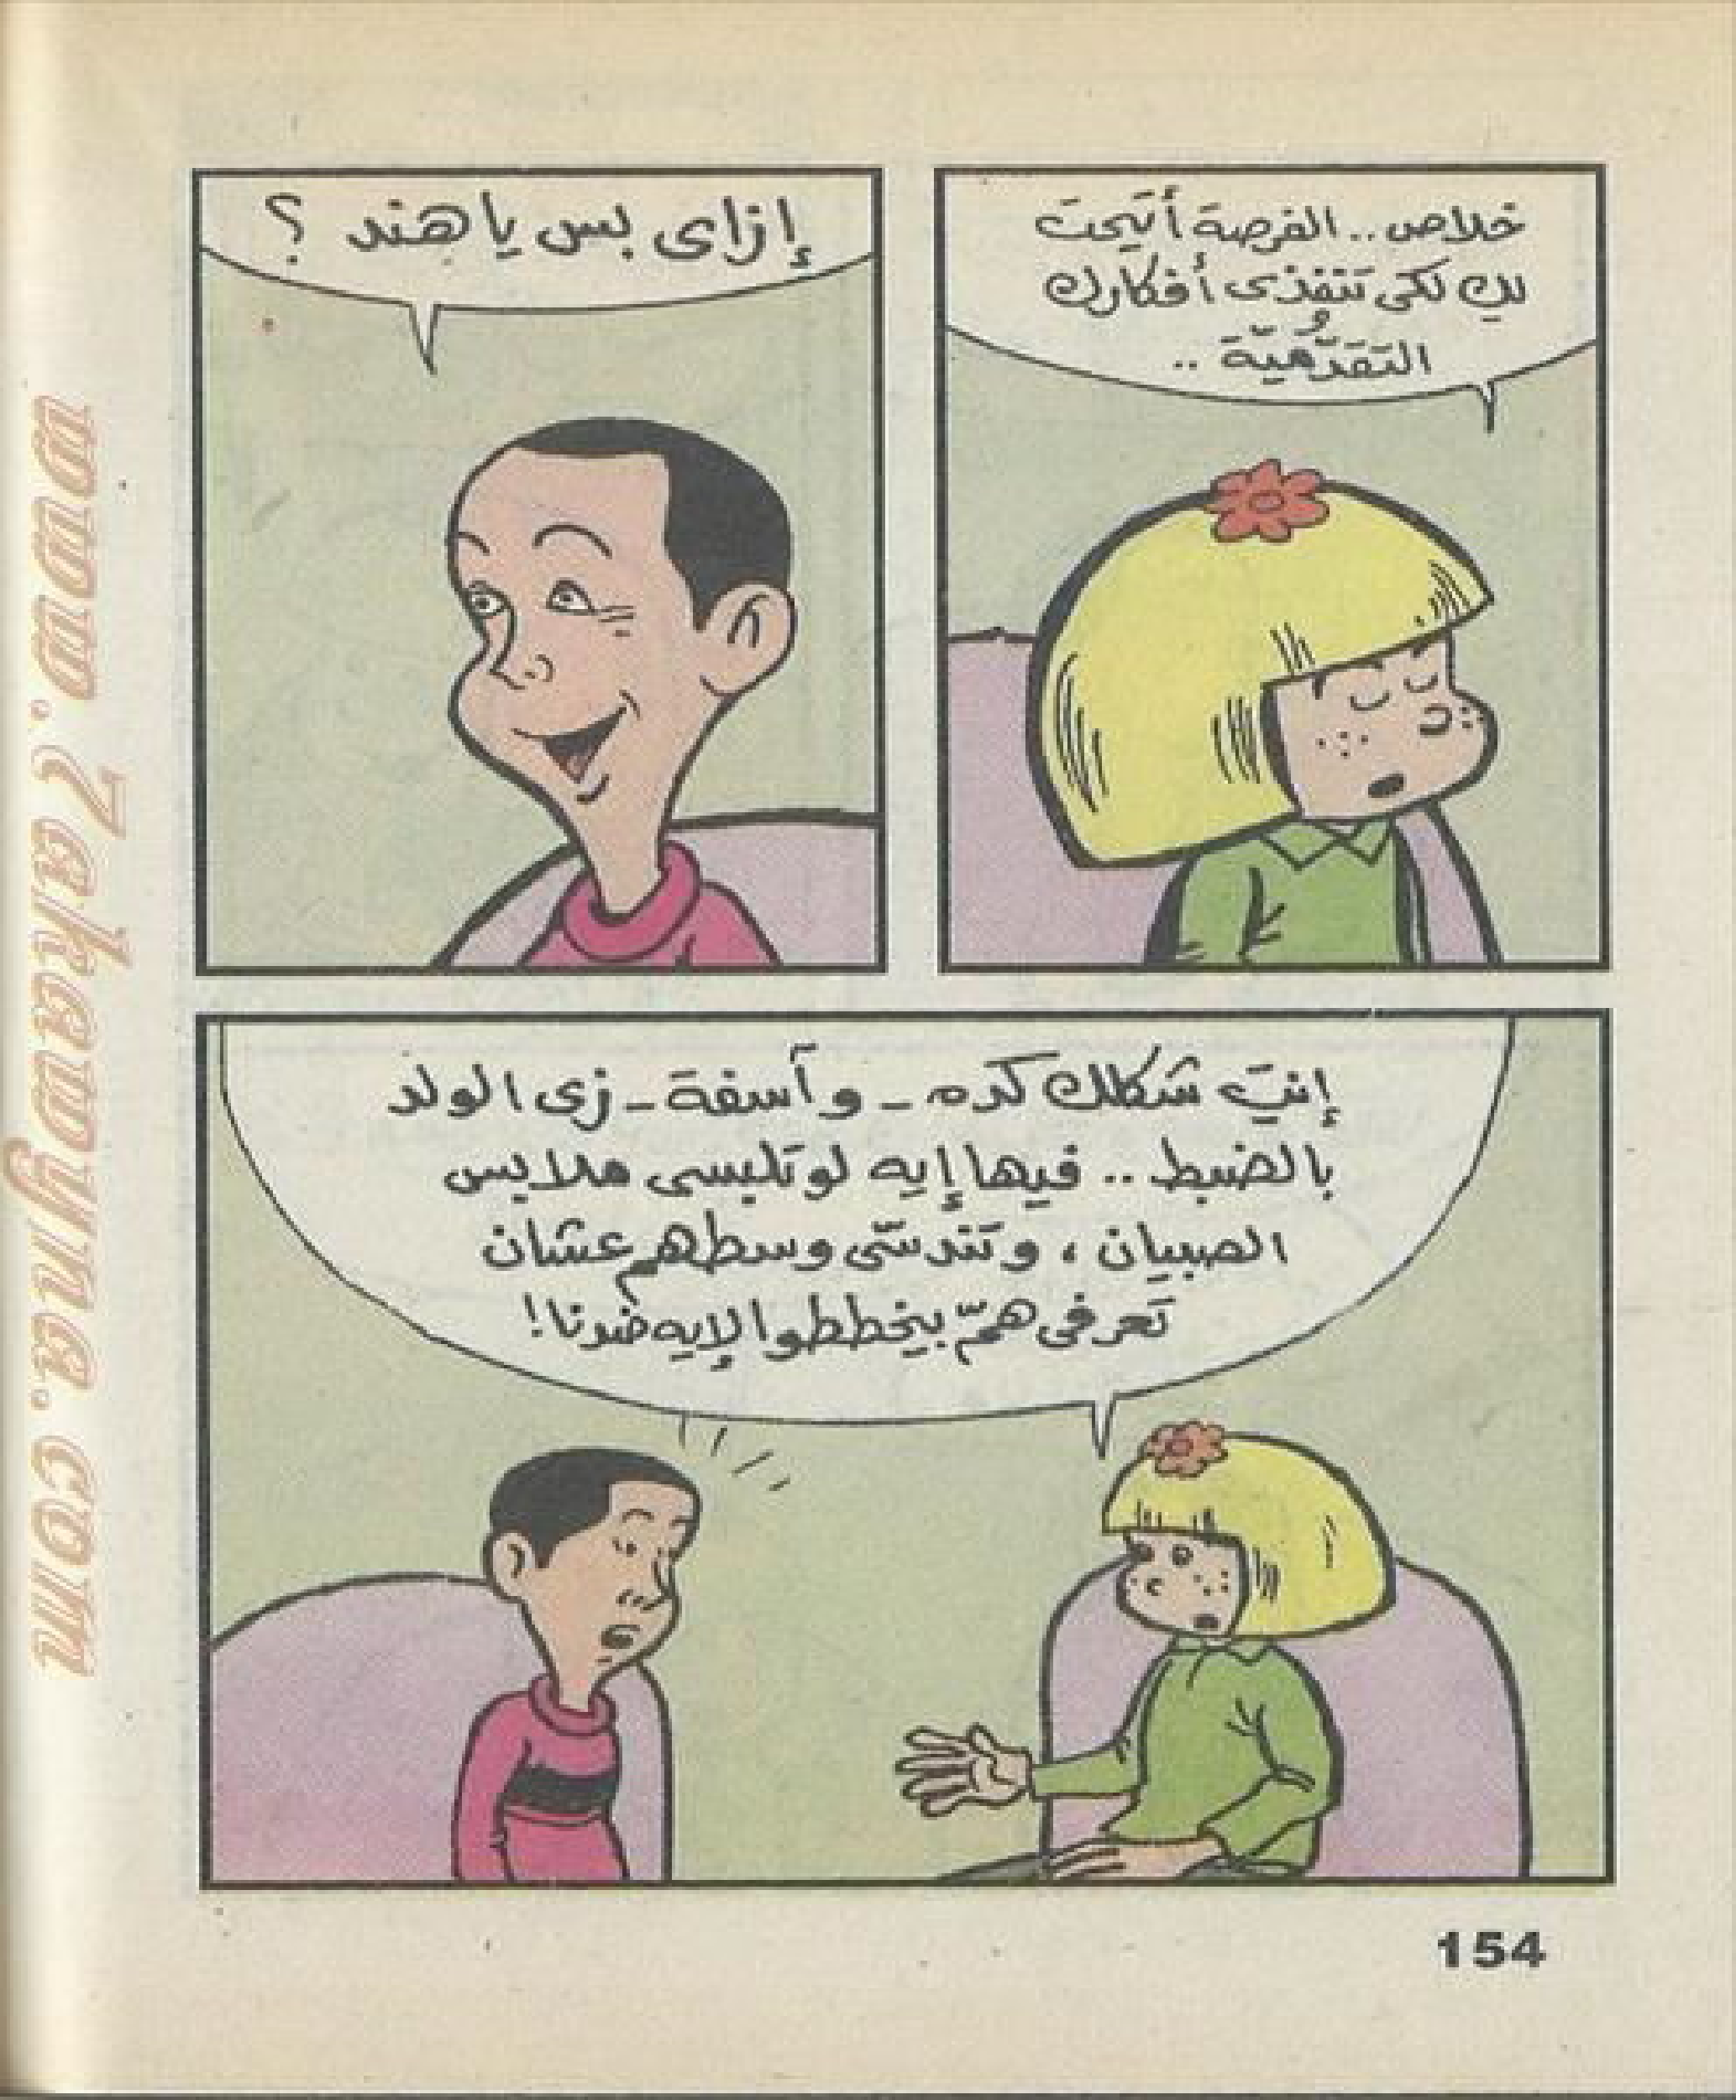 خلاص.. الفرصة أتيحت
لكِ لكى تنفذى أفكارك
التقدُّميّة ..
إزاى بس يا هند ؟
إنتِ شكلك كده - وآسفة - زى الولد
بالضبط .. فيها إيه لو تلبسى ملابس
الصبيان ، وتندسّى وسطهم عشان
تعرفى همّ بيخططوا لإيه ضدنا !
154
www.7akawyna.com